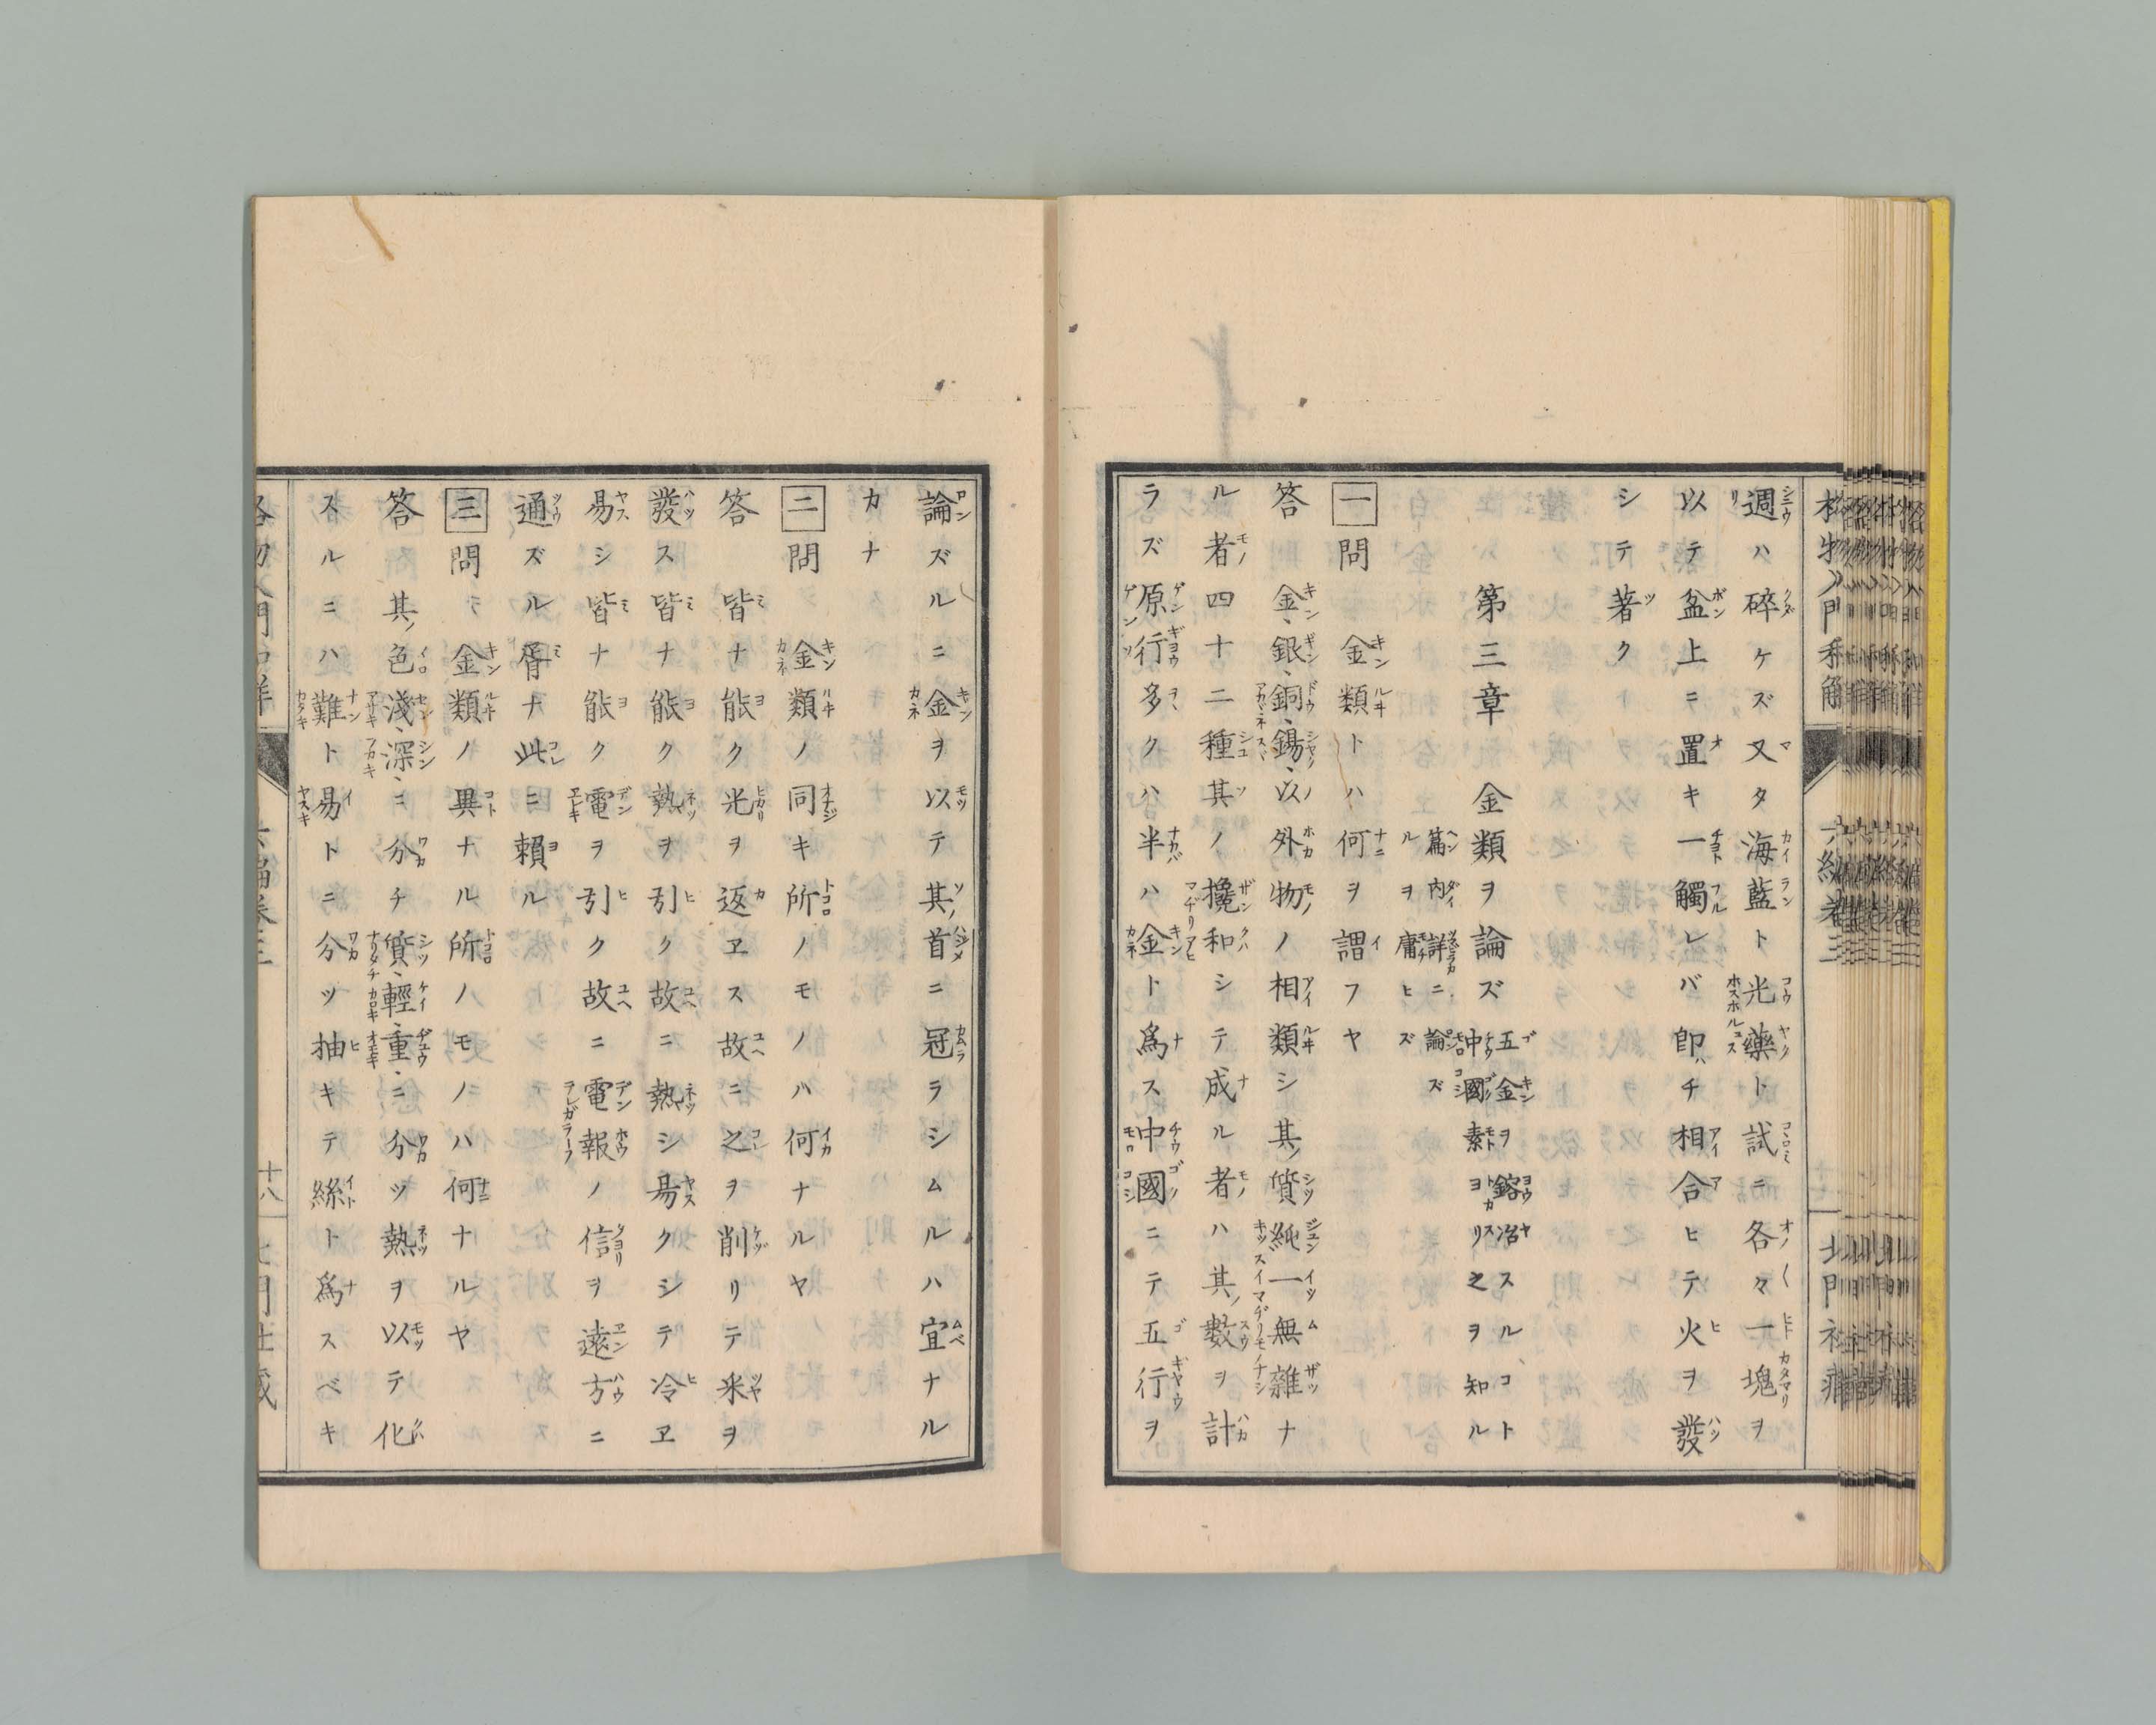 週ハ碎ケズ又タ海藍ト光藥ト試ニ各々一塊ヲ
以テ盆上ニ置キ一觸レバ卽チ相合ヒテ火ヲ發
シテ著ク
第三章 金類ヲ論ズ
五金ヲ鎔冶スルコト
中國素ヨリ之ヲ知ル
篇內詳ニ論ズ
ルヲ庸ヒズ
一 問 金類トハ何ヲ謂フヤ
答 金、銀、銅、錫、以外物ノ相類シ其質純一無雜ナ
ル者四十二種其ノ攙和シテ成ル者ハ其數ヲ計
ラズ原行多クハ半ハ金ト爲ス中國ニテ五行ヲ
論ズルニ金ヲ以テ其首ニ冠ラシムルハ宜ナル
カナ
二 問 金類ノ同キ所ノモノハ何ナルヤ
答 皆ナ能ク光ヲ返ヱス故ニ之ヲ削リテ釆ヲ
發ス皆ナ能ク熱ヲ引ク故ニ熱シ易クシテ冷ヱ
易シ皆ナ能ク電ヲ引ク故ニ電報ノ信ヲ遠方ニ
通ズル胥ナ此ニ賴ル
三 問 金類ノ異ナル所ノモノハ何ナルヤ
答 其色淺、深、ニ分チ質、輕、重、ニ分ツ熱ヲ以テ化
スルニハ難ト易トニ分ツ抽キテ絲ト爲スベキ
十八